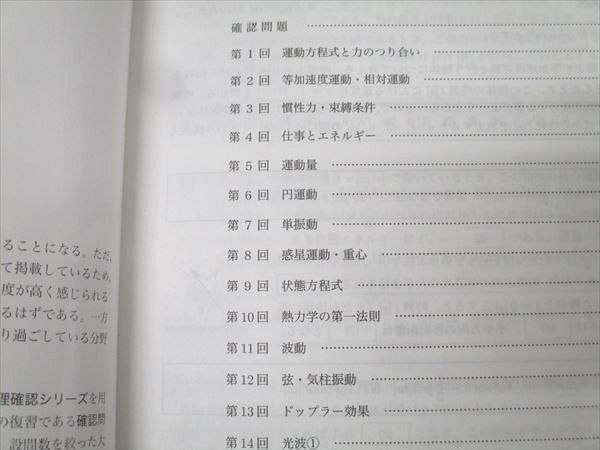 確認問題
第1回 運動方程式と力のつり合い
第2回 等加速度運動・相対運動
第3回 慣性力・束縛条件
第4回 仕事とエネルギー
第5回 運動量
第6回 円運動
第7回 単振動
第8回 惑星運動・重心
第9回 状態方程式
第10回 熱力学の第一法則
第11回 波動
第12回 弦・気柱振動
第13回 ドップラー効果
第14回 光波①
ることになる。ただ,
て掲載しているため,
度が高く感じられる
るはずである。一方
り過ごしている分野
理確認シリーズを用
の復習である確認問
設問数を絞った大